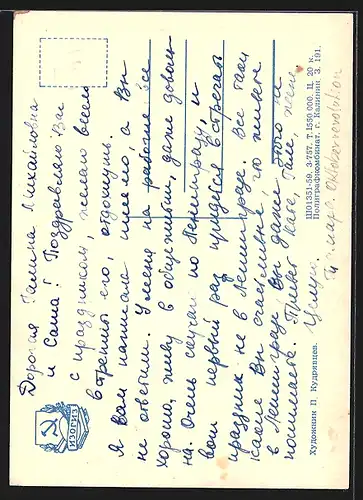 Дорогая Галина Михайловна
и Саша! Поздравляю Вас
с праздником, желаю всем
встретить его, отдохнуть.
Я Вам написала письмо, а Вы
не ответили. У меня на работе все
хорошо, живу в общежитии, даже довольна.
Очень скучаю по Ленинграду, и
вот первый раз придется встречать
праздник не в Ленинграде. Все таки
какие Вы счастливые, что живете
в Ленинграде, Вы даже этого не
понимаете. Привет Кате, Гале, Целую.
ИЗОГИЗ
Художник П. Кудрявцев.
Ш01351-59. З-757. Т. 1550 000. Ц. 20 к.
Полиграфкомбинат. г. Калинин. З. 191.
Oktoberrevolution